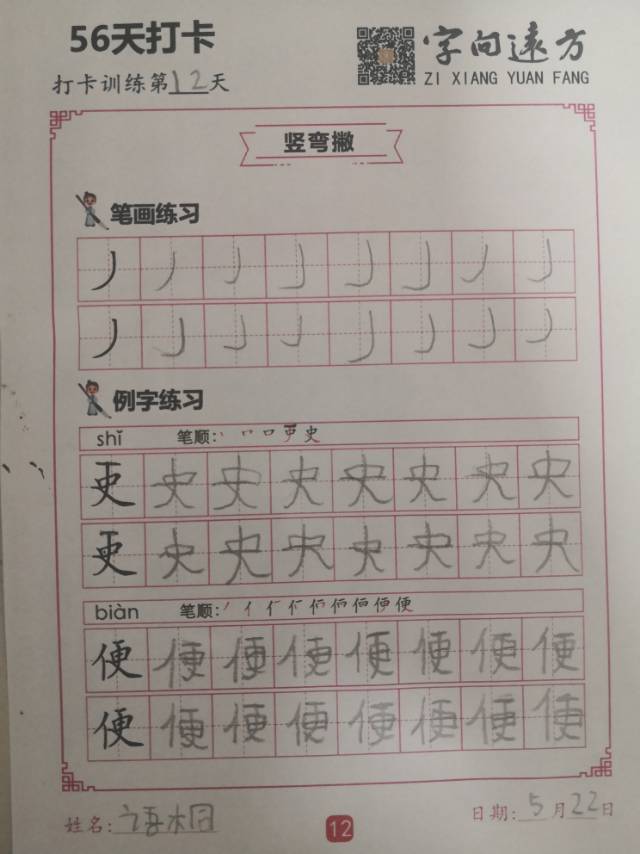 56天打卡
字向远方
打卡训练第12天
ZI XIANG YUAN FANG
竖弯撇
笔画练习
丿 丿 丿 丿 丿 丿 丿 丿
丿 丿 丿 丿 丿 丿 丿 丿
例字练习
shǐ 笔顺: 丶 口 口 史 史
史 史 史 史 史 史 史 史
史 史 史 史 史 史 史 史
biàn 笔顺: 丿 亻 便
便 便 便 便 便 便 便 便
便 便 便 便 便 便 便 便
姓名: 语桐 12 日期: 5月22日